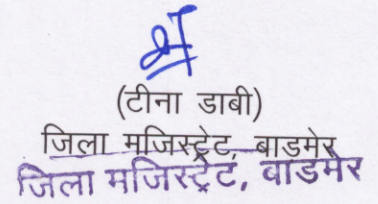 (टीना डाबी)
जिला मजिस्ट्रेट, बाडमेर
जिला मजिस्ट्रेट, बाडमेर